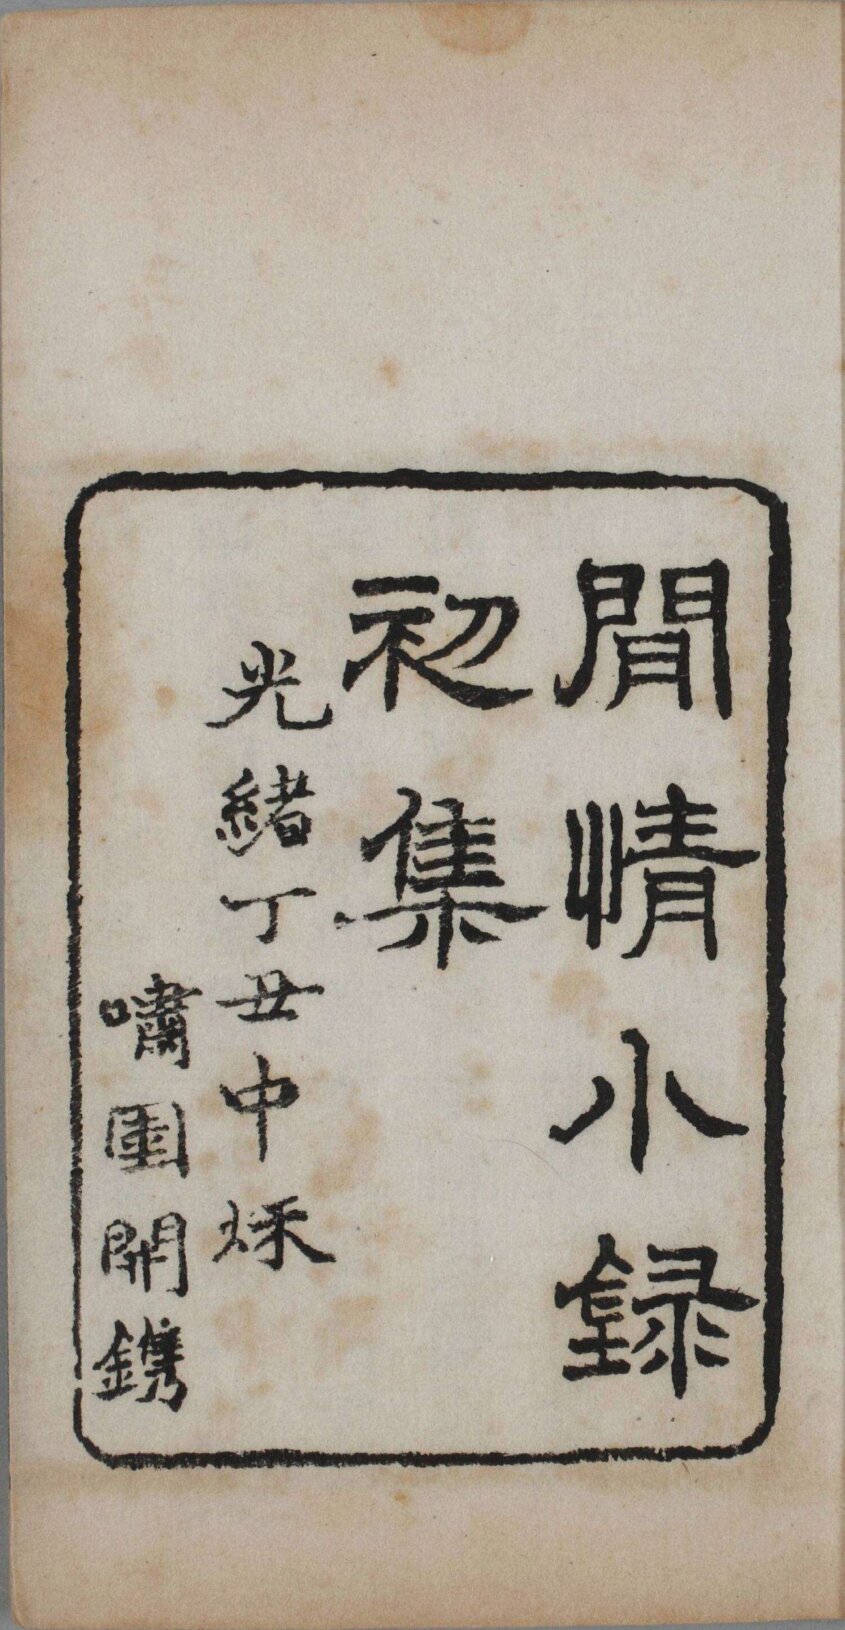 閒情小録
初集
光緒丁丑中秌
嘯園開鐫